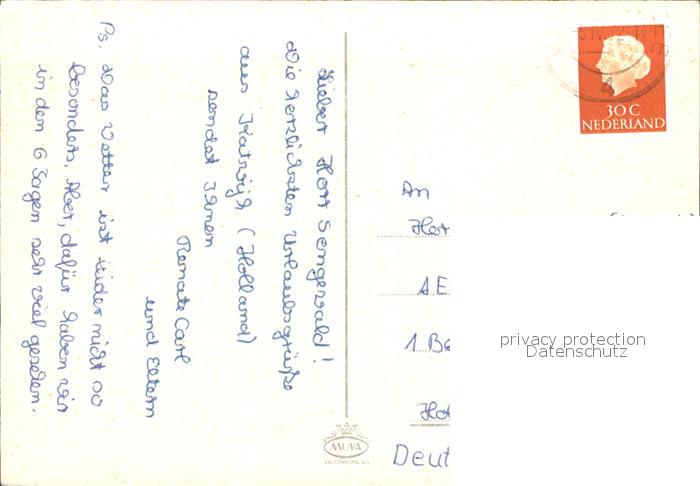 Lieber Herr Sengewald!
Die herzlichsten Urlaubsgrüße
aus Katwijk (Holland)
sendet Ihnen
Renate Carl
und Eltern
Ps. Das Wetter ist leider nicht so
besonders. Aber, dafür haben wir
in den 6 Tagen sehr viel gesehen.
30 C
NEDERLAND
An
Her
1 Be
Deut
MUVA
VALKENBURG
privacy protection
Datenschutz